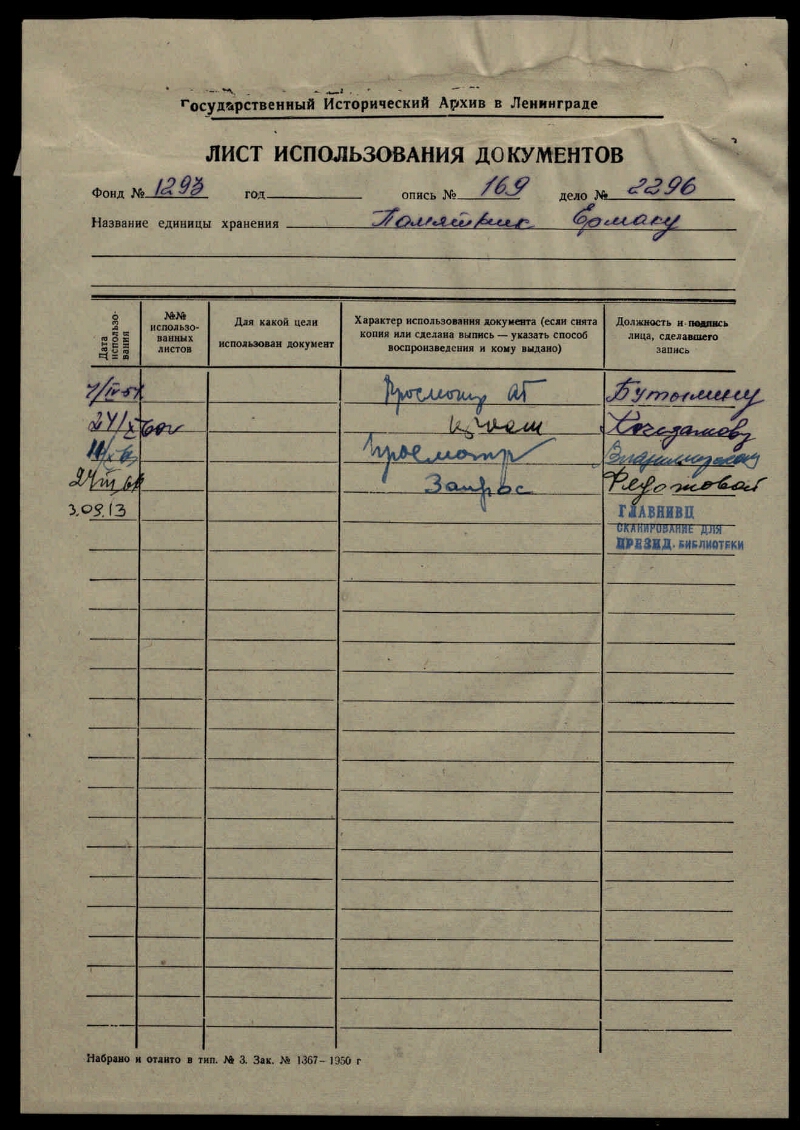 Государственный Исторический Архив в Ленинграде
ЛИСТ ИСПОЛЬЗОВАНИЯ ДОКУМЕНТОВ
Фонд № 1293 год опись № 169 дело № 2296
Название единицы хранения Памятник Ермаку
Дата использования
№№ использо-
ванных
листов
Для какой цели
использован документ
Характер использования документа (если снята
копия или сделана выпись — указать способ
воспроизведения и кому выдано)
Должность и подпись
лица, сделавшего
запись
Просмотр
Просмотр
Запрос Федотовой
3.09.13 ГЛАВНИВЦ
СКАНИРОВАНИЕ ДЛЯ
ПРЕЗИД. БИБЛИОТЕКИ
Набрано и отпто в тип. № 3. Зак. № 1367–1950 г